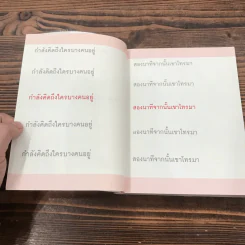 กำลังคิดถึงใครบางคนอยู่
กำลังคิดถึงใครบางคนอยู่
กำลังคิดถึงใครบางคนอยู่
กำลังคิดถึงใครบางคนอยู่
กำลังคิดถึงใครบางคนอยู่
สองนาทีจากนั้นเขาโทรมา
สองนาทีจากนั้นเขาโทรมา
สองนาทีจากนั้นเขาโทรมา
สองนาทีจากนั้นเขาโทรมา
สองนาทีจากนั้นเขาโทรมา